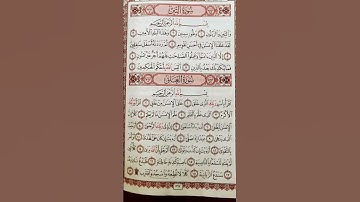 سُورَةُ التِّينِ
بِسْمِ اللَّهِ الرَّحْمَٰنِ الرَّحِيمِ
وَالتِّينِ وَالزَّيْتُونِ ١ وَطُورِ سِينِينَ ٢ وَهَٰذَا الْبَلَدِ الْأَمِينِ ٣
لَقَدْ خَلَقْنَا الْإِنسَٰنَ فِي أَحْسَنِ تَقْوِيمٍ ٤ ثُمَّ رَدَدْنَٰهُ أَسْفَلَ سَٰفِلِينَ ٥
إِلَّا الَّذِينَ ءَامَنُوا وَعَمِلُوا الصَّٰلِحَٰتِ فَلَهُمْ أَجْرٌ غَيْرُ مَمْنُونٍ ٦
فَمَا يُكَذِّبُكَ بَعْدُ بِالدِّينِ ٧ أَلَيْسَ اللَّهُ بِأَحْكَمِ الْحَٰكِمِينَ ٨
سُورَةُ الْعَلَقِ
بِسْمِ اللَّهِ الرَّحْمَٰنِ الرَّحِيمِ
اقْرَأْ بِاسْمِ رَبِّكَ الَّذِي خَلَقَ ١ خَلَقَ الْإِنسَٰنَ مِنْ عَلَقٍ ٢ اقْرَأْ وَرَبُّكَ
الْأَكْرَمُ ٣ الَّذِي عَلَّمَ بِالْقَلَمِ ٤ عَلَّمَ الْإِنسَٰنَ مَا لَمْ يَعْلَمْ ٥ كَلَّا
إِنَّ الْإِنسَٰنَ لَيَطْغَىٰ ٦ أَن رَّءَاهُ اسْتَغْنَىٰ ٧ إِنَّ إِلَىٰ رَبِّكَ الرُّجْعَىٰ ٨
أَرَءَيْتَ الَّذِي يَنْهَىٰ ٩ عَبْدًا إِذَا صَلَّىٰ ١٠ أَرَءَيْتَ إِن كَانَ عَلَى الْهُدَىٰ ١١
أَوْ أَمَرَ بِالتَّقْوَىٰ ١٢ أَرَءَيْتَ إِن كَذَّبَ وَتَوَلَّىٰ ١٣ أَلَمْ يَعْلَم بِأَنَّ اللَّهَ يَرَىٰ ١٤
كَلَّا لَئِن لَّمْ يَنتَهِ لَنَسْفَعًا بِالنَّاصِيَةِ ١٥ نَاصِيَةٍ كَٰذِبَةٍ خَاطِئَةٍ ١٦ فَلْيَدْعُ نَادِيَهُ ١٧
سَنَدْعُ الزَّبَانِيَةَ ١٨ كَلَّا لَا تُطِعْهُ وَاسْجُدْ وَاقْتَرِب ۩ ١٩